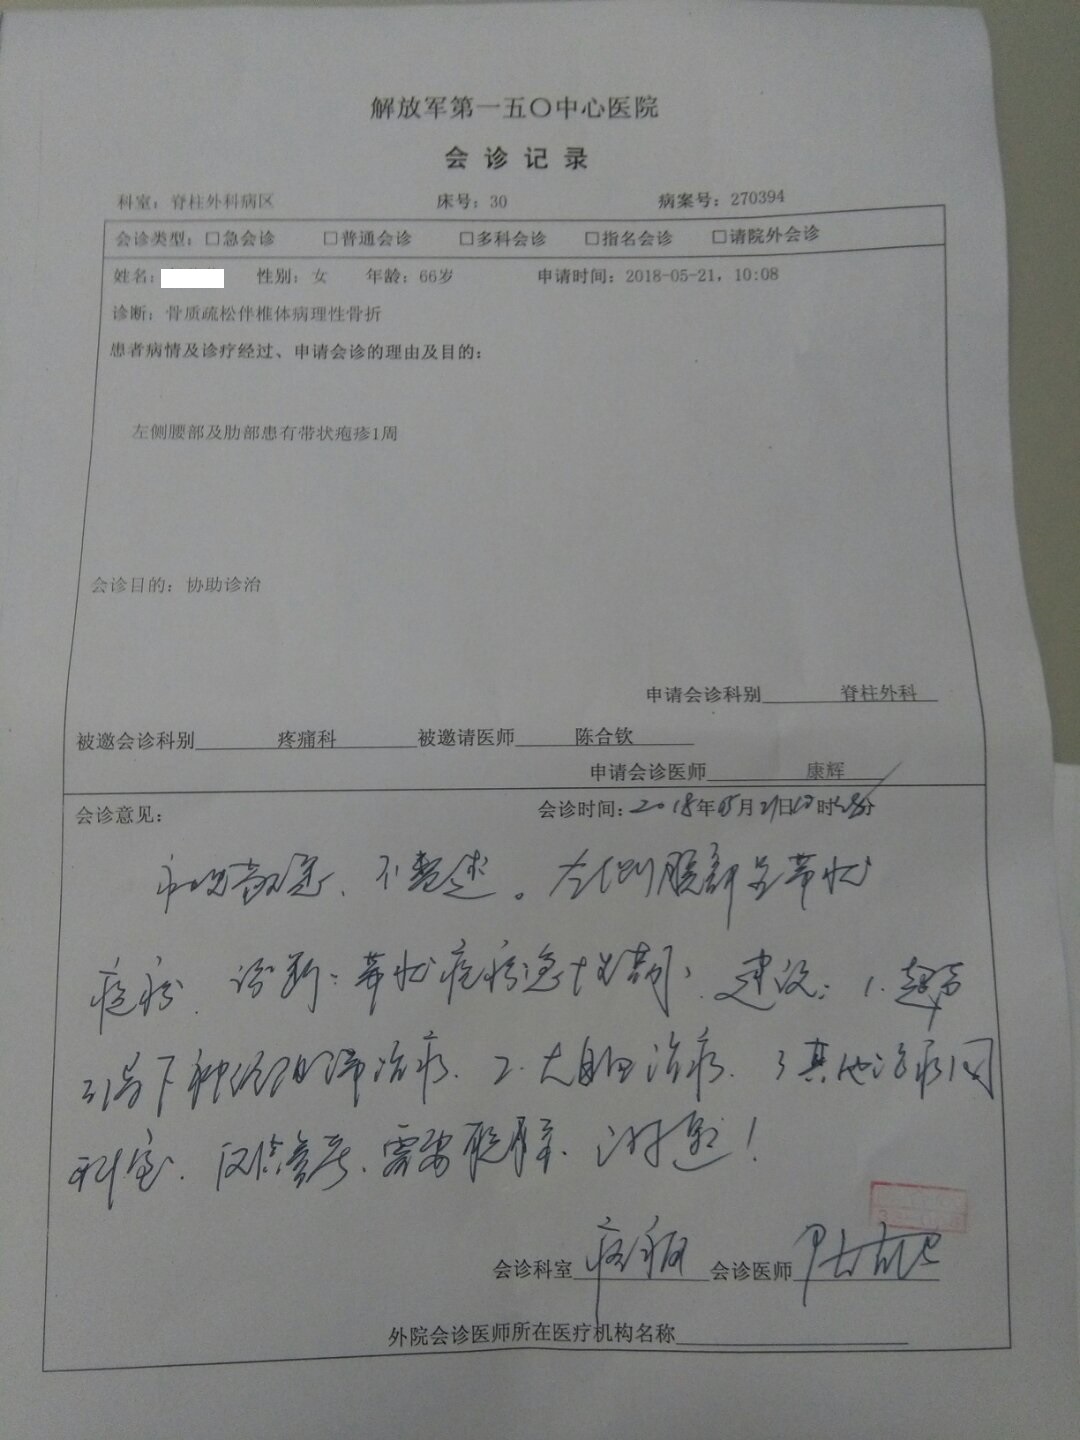 解放军第一五〇中心医院
会诊记录
科室：脊柱外科病区 床号：30 病案号：270394
会诊类型：□急会诊 □普通会诊 □多科会诊 □指名会诊 □请院外会诊
姓名： 性别：女 年龄：66岁 申请时间：2018-05-21，10:08
诊断：骨质疏松伴椎体病理性骨折
患者病情及诊疗经过、申请会诊的理由及目的：
左侧腰部及肋部患有带状疱疹1周
会诊目的：协助诊治
申请会诊科别 脊柱外科
被邀会诊科别 疼痛科 被邀请医师 陈合钦
申请会诊医师 康辉
会诊意见： 会诊时间：2018年05月21日 时 分
不赘述。左侧腰部呈带状
疱疹. 诊断：带状疱疹急性期；建议：1.超声
引导下神经阻滞治疗. 2.大自血治疗. 3其他治疗同
科室. 仅供参考. 需要联系. 谢邀！
会诊科室 疼痛 会诊医师
外院会诊医师所在医疗机构名称